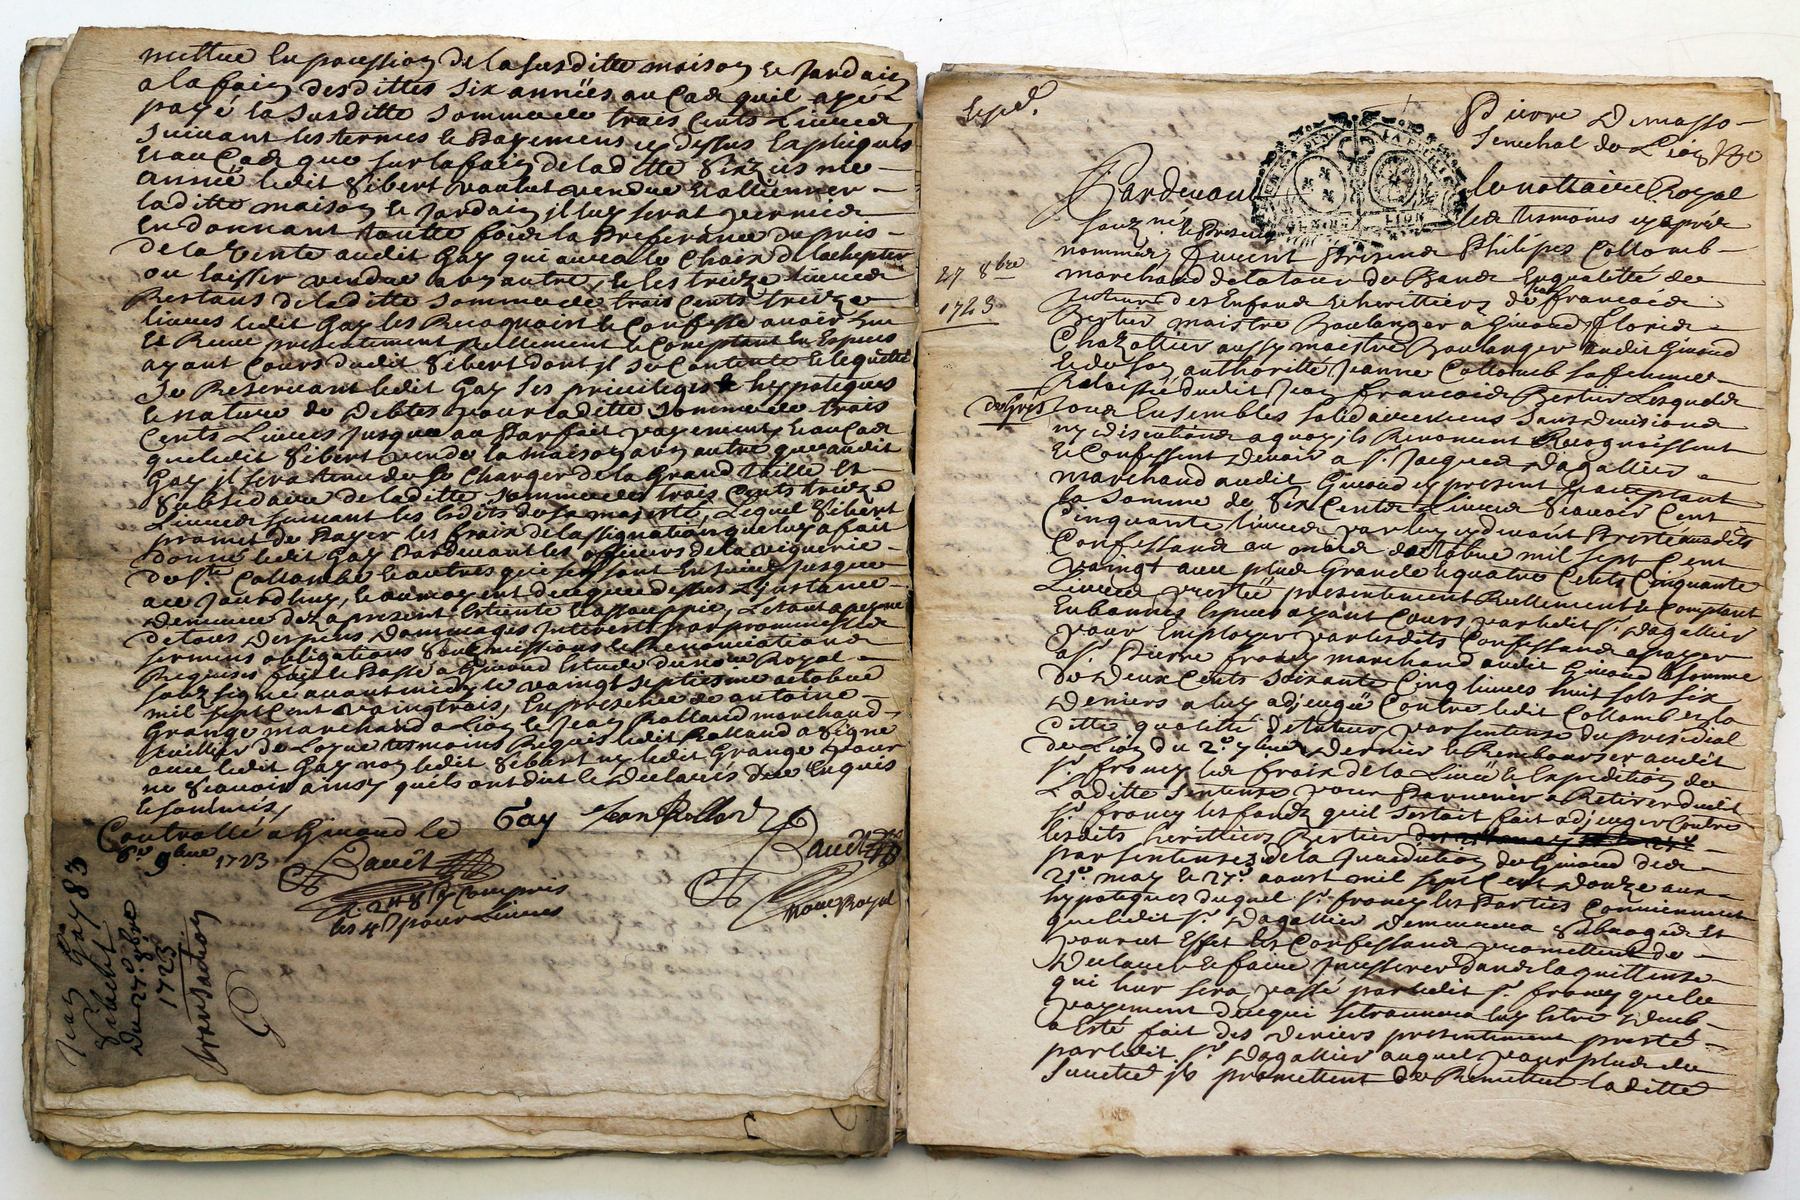 mettre en possession de la susditte maison et jardain
a la fain desdittes six années au cas quil aye
payé la susditte somme de trais cents livres
suivant les termes de payemens cy dessus expliqués
et au cas que sur la fain de laditte sixzisme
année ledit Sibert voulut vendre et allienner
laditte maison et jardain il luy serat permis
en donnant toutte fois la preferance du pris
de la vente audit Gay qui aura le choix de lachepter
ou laisser vendre a un autre, et les treize livres
restans de laditte somme de trois cents treize
livres ledit Gay les recognoist et confesse avoir eu
et receu presentement reellement et comptant en especes
ayant cours dudit Sibert dont il se contente et le quitte
se reservant ledit Gay ses privileges et hypoteques
et nature de debtes pour laditte somme de trois
cents livres jusques au parfait payement, et au cas
que ledit Sibert vende la maison a un autre que audit
Gay il sera tenu de se charger de la grand taille et
subsidaire de laditte somme de trois cents treize
livres suivant les edits de sa majesté, lequel Sibert
promet de payer les frais de lassignation que luy a fait
donner ledit Gay pardevant les officiers de la viguerie
de Ste Collombe et autres qui se sont ensuivis jusques
a ce jourdhuy, et au moyent de ce que dessus linstance
demeure des a present esteinte et assouppie, le tout a peyne
de tous despens dommages interests par promesses
sermens obligations soubmissions et renonciations
requises fait et passé a Givord estude du nore royal
soubzsigné avant midy le vaingt septiesme octobre
mil sept cent vaingtrois, en presence de antoine
Grange marchand a Lion et Jean Rolland marchand
de Loyre tesmoins requis ledit Rolland a signé
avec ledit Gay non ledit Sibert ny ledit Grange pour
ne sçavoir ainsy quils ont dit et declarés de ce enquis
et sommés,
Gay Jean Rollan
Controllé a Givord le
9bre 1723
nore Royal
les 4s pour livres
Jean Gay 83
Sibert
Du 27e 8bre
1723
transaction
exped.
Pierre Demasso
Senechal de Lion
Pardevant le nottaire Royal
GENERALITE DE LION
souzné et presens les tesmoins cy après
nommés, furent presens Philipes Collomb
27 8bre
1723
marchand de la tour du en qualité de
tuteur des enfans et herittiers de feu francois
Bertier maistre boulanger a Givord, floris
Chazottier aussy maistre boulanger audit Givord
et de son authorité Jeanne Collomb sa femme
relaissée dudit Jean francois Bertier lesquels
tous ensembles solidairement sans division
ny discution a quoy ils renoncent recognoissent
et confessent devoir a sr. Jacques Dagallier
marchand audit Givord cy present et acceptant
la somme de six cents livres sçavoir cent
cinquante livres par luy cy devant prestée ausdits
confessans au mois doctobre mil sept cent
vaingt avec plus grande et quatre cents cinquante
livres prestée presentement reellement et comptant
en bonnes especes ayant cours par ledit sr. Dagallier
pour employer par lesdits confessans a payer
a sr. Pierre francy marchand audit Givord la somme
de deux cents soixante cinq livres huit sols six
deniers a luy adjeugée contre ledit Collomb en la
ditte qualitté de tuteur par sentense du presidial
de Lion du 2e dernier et rembourser audit
sr. francy les frais de la levée et expedition de
laditte sentense pour parvenir a retirer dudit
sr. francy les fonds quil sestait fait adjeuger contre
lesdits herittiers Bertier
par sentenses de la juridiction de Givord des
21e. may et 27e. aoust mil sept cent douze aux
hypoteques duquel sr. francy les parties conviennent
que ledit sr. Dagallier demeurera subrogé et
pour cet effet les confessans promettent de
declarer et faire jnsserer dans la quittense
qui leur sera passé par ledit sr. francy que le
payement de ce qui se trouvera luy estre deub
a esté fait des deniers presentement prestés
par ledit sr. Dagallier auquel pour plus de
sureté ils promettent de remettre laditte